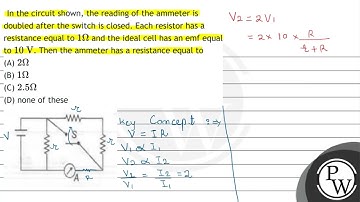 In the circuit shown, the reading of the ammeter is
doubled after the switch is closed. Each resistor has a
resistance equal to 1Ω and the ideal cell has an emf equal
to 10 V. Then the ammeter has a resistance equal to
(A) 2Ω
(B) 1Ω
(C) 2.5Ω
(D) none of these
V2 = 2V1
= 2 × 10 × R
r + R
Key Concept :⇒
V = IR
V1 ∝ I1
V2 ∝ I2
V2 = I2 = 2
V1 I1
V
r
r
r
A
R
PW